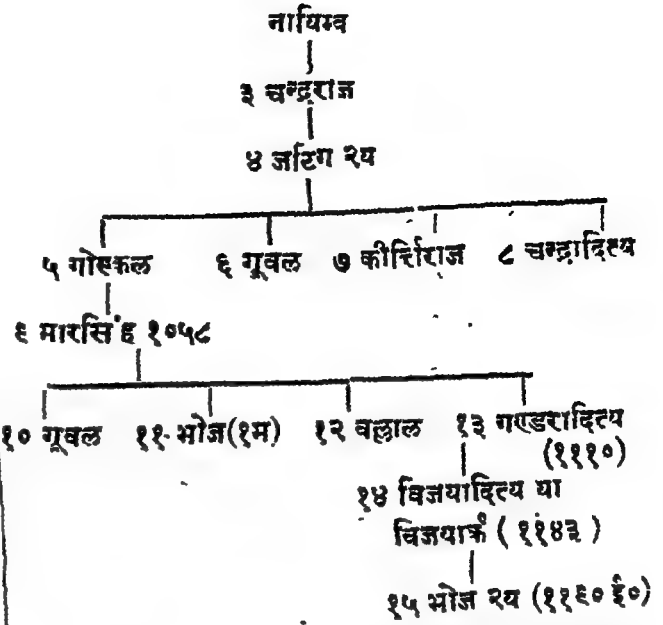 नायिम्व
३ चन्द्रराज
४ जटिग २य
५ गोङ्कल ६ गूवल ७ कीर्त्तिराज ८ चन्द्रादित्य
६ मारसिंह १०५८
१० गूवल ११ भोज (१म) १२ वल्लाल १३ गण्डरादित्य
(१११०)
१४ विजयादित्य या
विजयार्क ( ११४३ )
१५ भोज २य (११६० ई०)